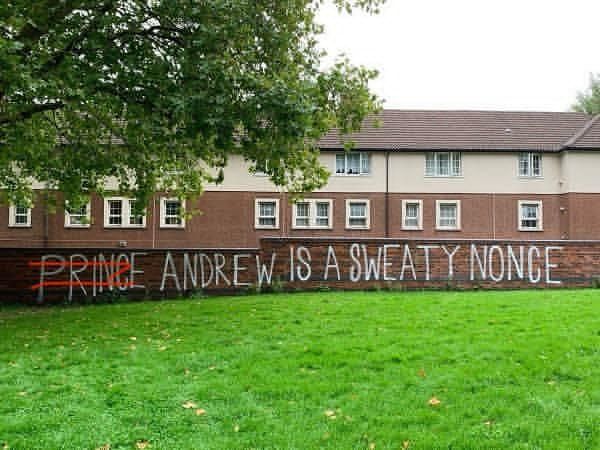 PRINCE ANDREW IS A SWEATY NONCE